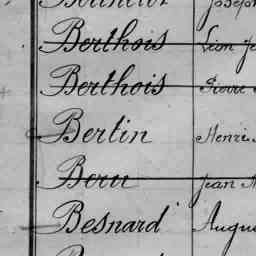 Berthois Léon
Berthois Pierre
Bertin Henri
Beru Jean
Besnard Augu